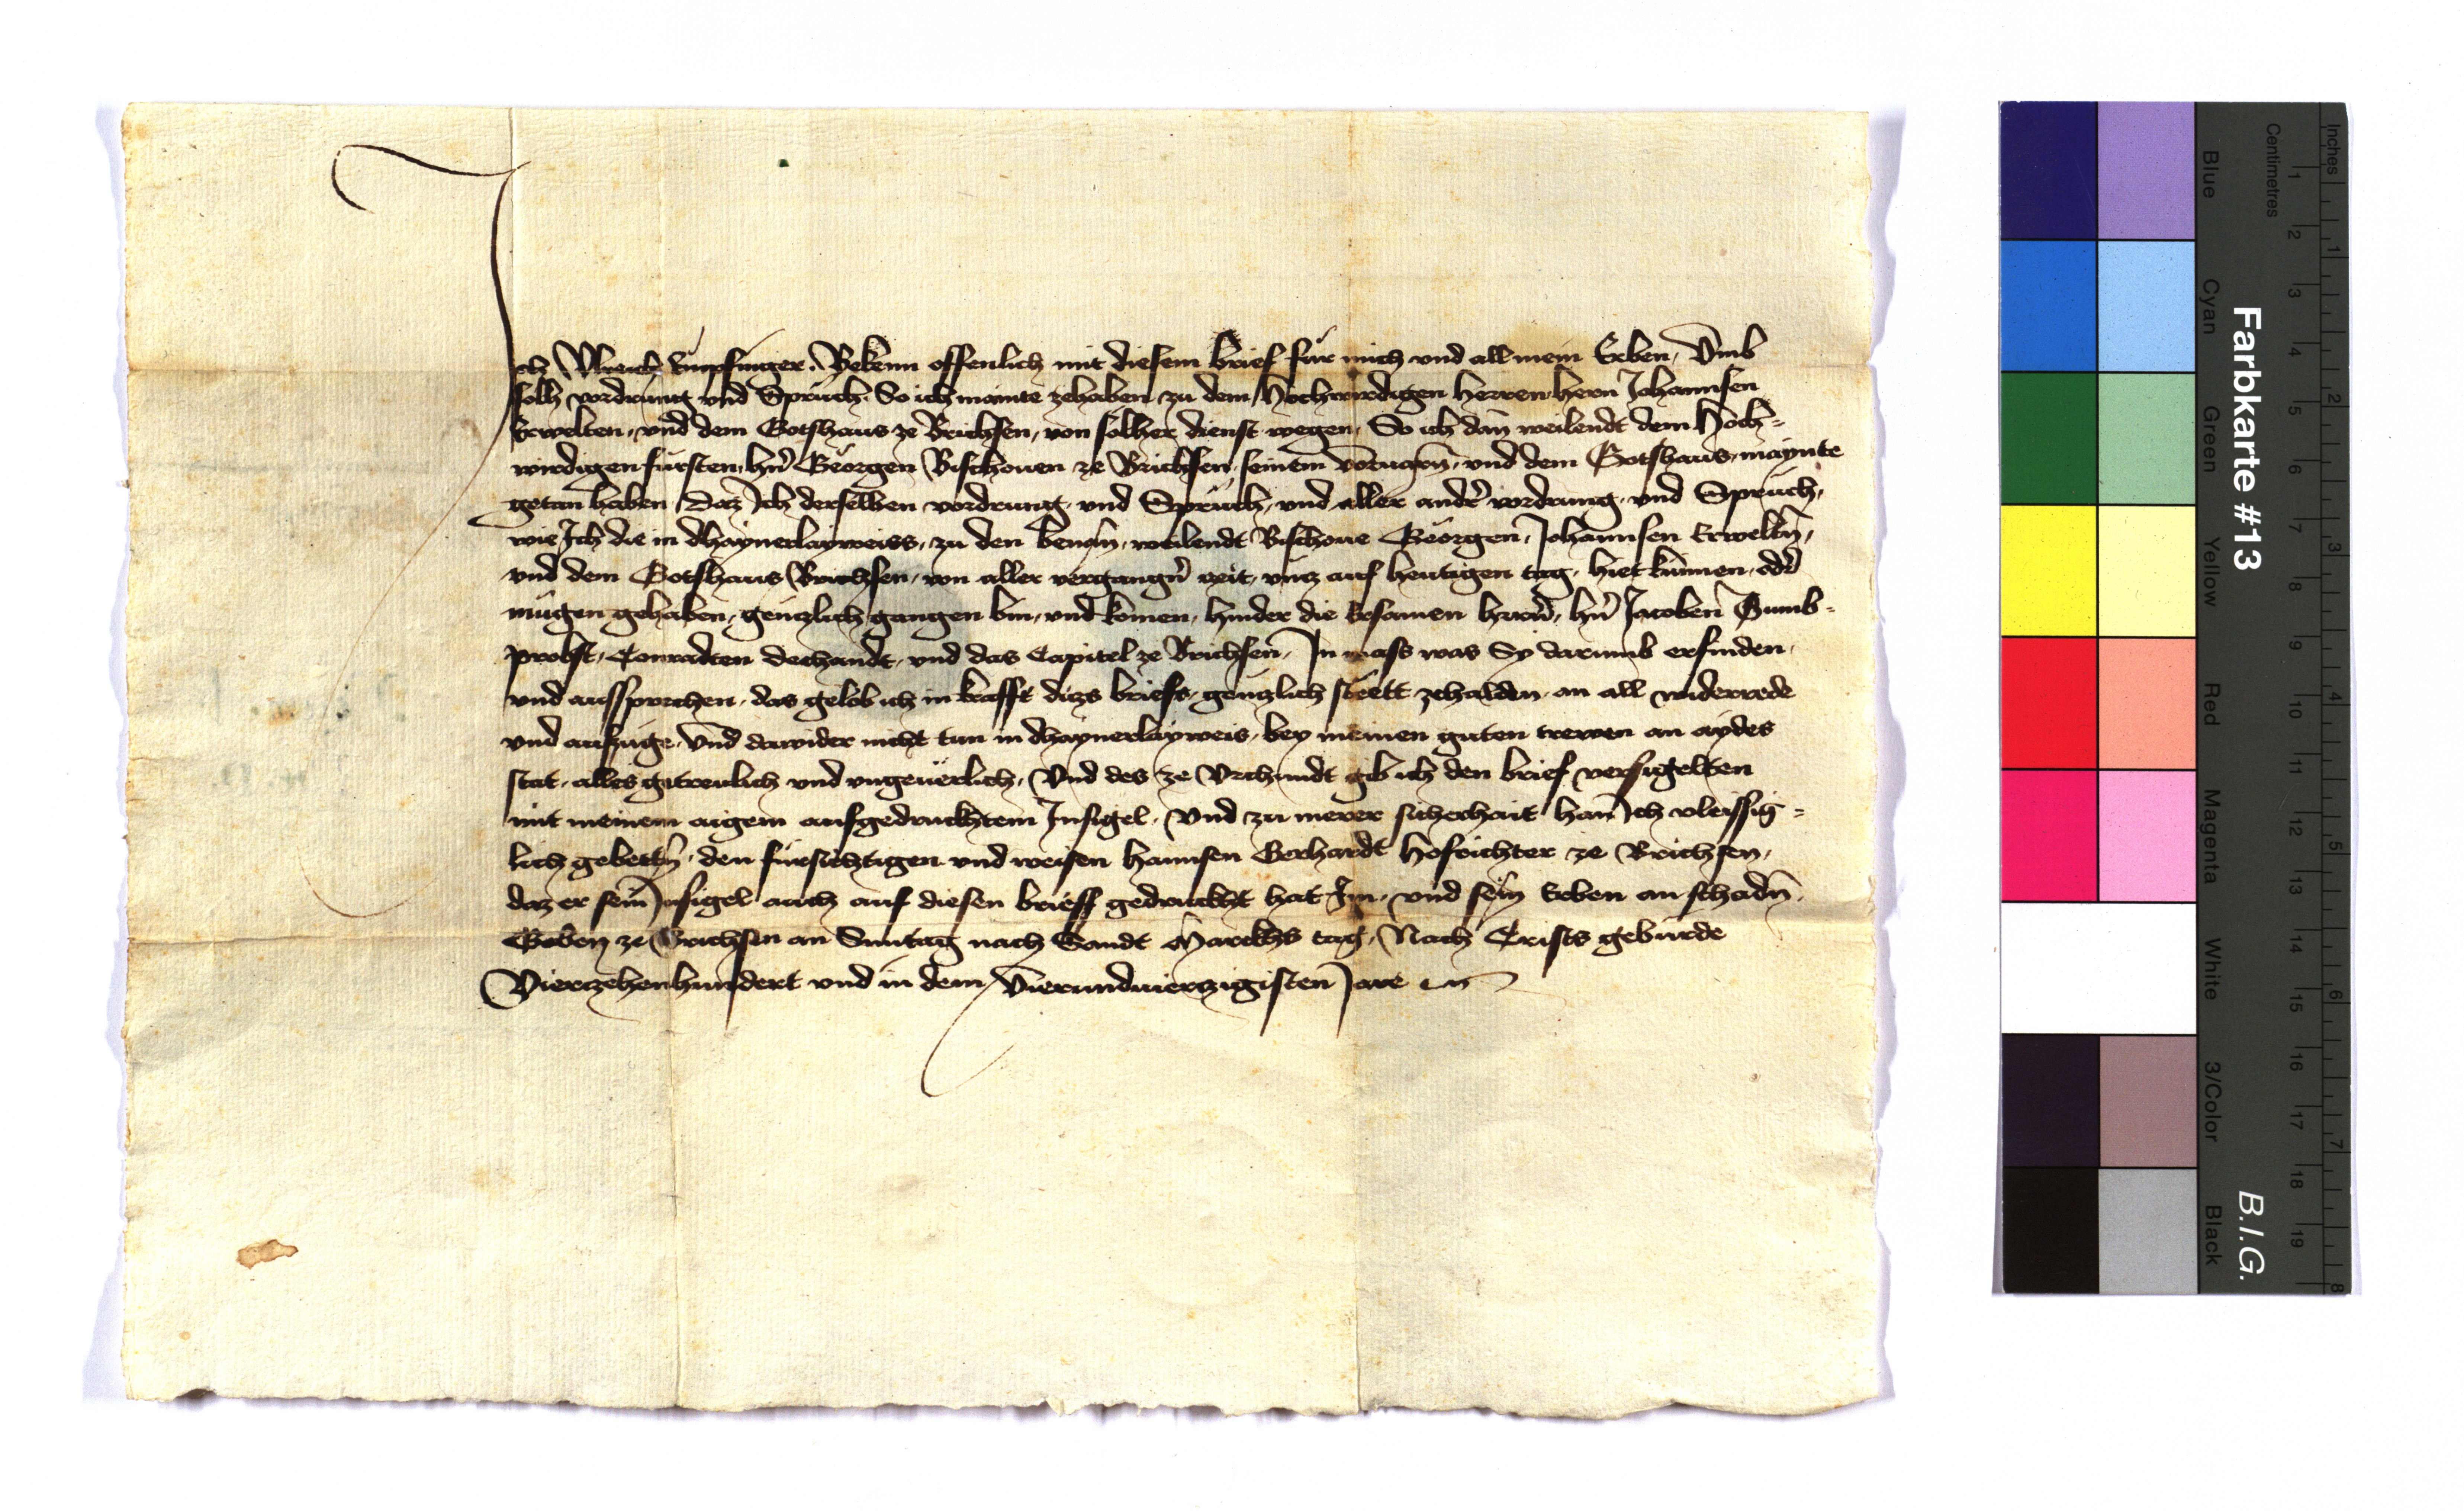 Ich Vlreich kupfinger. Bekenn offenlich mit diesem brief für mich vnd all mein Erben, Vmb
solh vordrung vnd Sprüch. So ich mainte zehaben zu dem Hochwirdigen herren, hern Johannsen
Erwelten, vnd dem Gotshaus ze Brichsen, von solher dienst wegen, So ich dan weilendt dem Hoch=
wirdigen fürsten, hñ Geörgen Bischouen ze Brichsen, seinem voruarn̄, vnd dem Gotshaus, maynte
getan haben Daz Ich derselben vordrung, vnd Sprüch, vnd aller andr̄ vordrung, vnd Sprüch,
wie Ich die in dhaynerlayweiss, zu den benan̄, weilendt Bischoue Geörgen, Johannsen Erwelt̄n,
vnd dem Gotshaus Brichsen, von aller vergangn̄ zeit, vncz auf heutigen tag, hiet künnen, odr̄
mügen gehaben, genczlich gangen bin, vnd komen, hinder die Ersamen herrn̄, hn̄ Jacoben Tumb=
probst, Conradten dechandt, vnd das Capitel ze Brichsen, In mass was Sy darumb erfinden,
vnd aussprechen, das gelob ich in krafft dicz briefs, genczlich stëtt zehalden, an all widerrede
vnd aufzüge, Vnd dawider nicht tun in dhaynerlayweis, bey meinen guten trewen an aydes
stat, alles getreulich vnd vngeuërlich, Vnd des ze Vrchundt gib ich den brief versigelten
mit meinem aigem aufgedrucktem Insigel, Vnd zu merer sicherhait han Ich vleissig=
lich gebettn̄, den fürsichtigen vnd weisen hannsen Gerhardt hofrichter ze Brichsen,
daz er sein Insigel auch auf diesen brieff gedruckht hat Im, vnd sein̄ Erben an schadn̄.
Geben ze Brichsen an Suntag nach Sandt Marckhs tag, Nach Crists gebürde
Vierzehenhundert vnd in dem Vierundvierzigisten Jare
Farbkarte #13
B.I.G.
Inches
Centimetres
1 2 3 4 5 6 7 8 9 10 11 12 13 14 15 16 17 18 19
1 2 3 4 5 6 7 8
Blue
Cyan
Green
Yellow
Red
Magenta
White
3/Color
Black